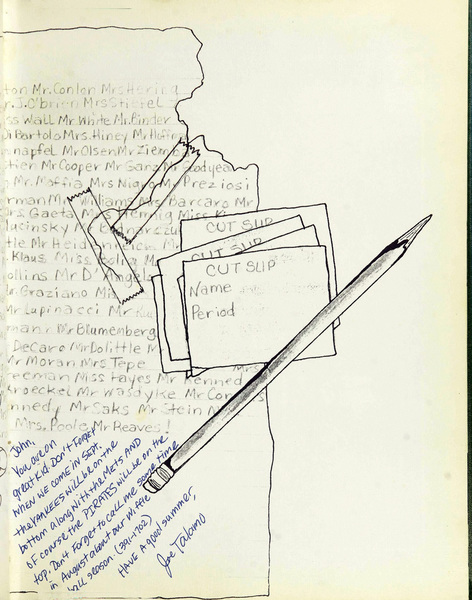 ton Mr. Conlon Mrs Hering
r. J. O'Brien Mrs Stietel
ss Wall Mr White Mr. Binder
Di Bartolo Mrs. Hiney Mr Hoffm
enapfel Mr Olsen Mr Ziem
tier Mr Cooper Mr Ganz Mr Goodyea
Mr. Maffia Mrs Nigro Mr Preziosi
rman Mr Williams Mrs Barcaro Mr
rs. Gaeta Mrs Hennig Miss
lucinsky
tle Mr Heid
Klaus Miss
ollins Mr D'Angelo
r. Graziano Mi
Mr Lupinacci Mr
mann Mr Blumenberg
DeCaro Mr Dolittle M
Mr Moran Mrs Tepe
reeman Miss Hayes Mr Kenned
kroeckel Mr Wasdyke Mr Cor
nnedy Mr Saks Mr Stein
Mrs. Poole Mr Reaves!
CUT SLIP
CUT SLIP
CUT SLIP
Name
Period
John,
You are on
great kid. Don't forget
when we come in Sept.
the YANKEES will be on the
bottom along with the Mets AND
of course the PIRATES will be on the
top. Don't forget to call me some time
in August about our wiffle
ball season. (391-1702)
Have a good summer,
Joe Talamo